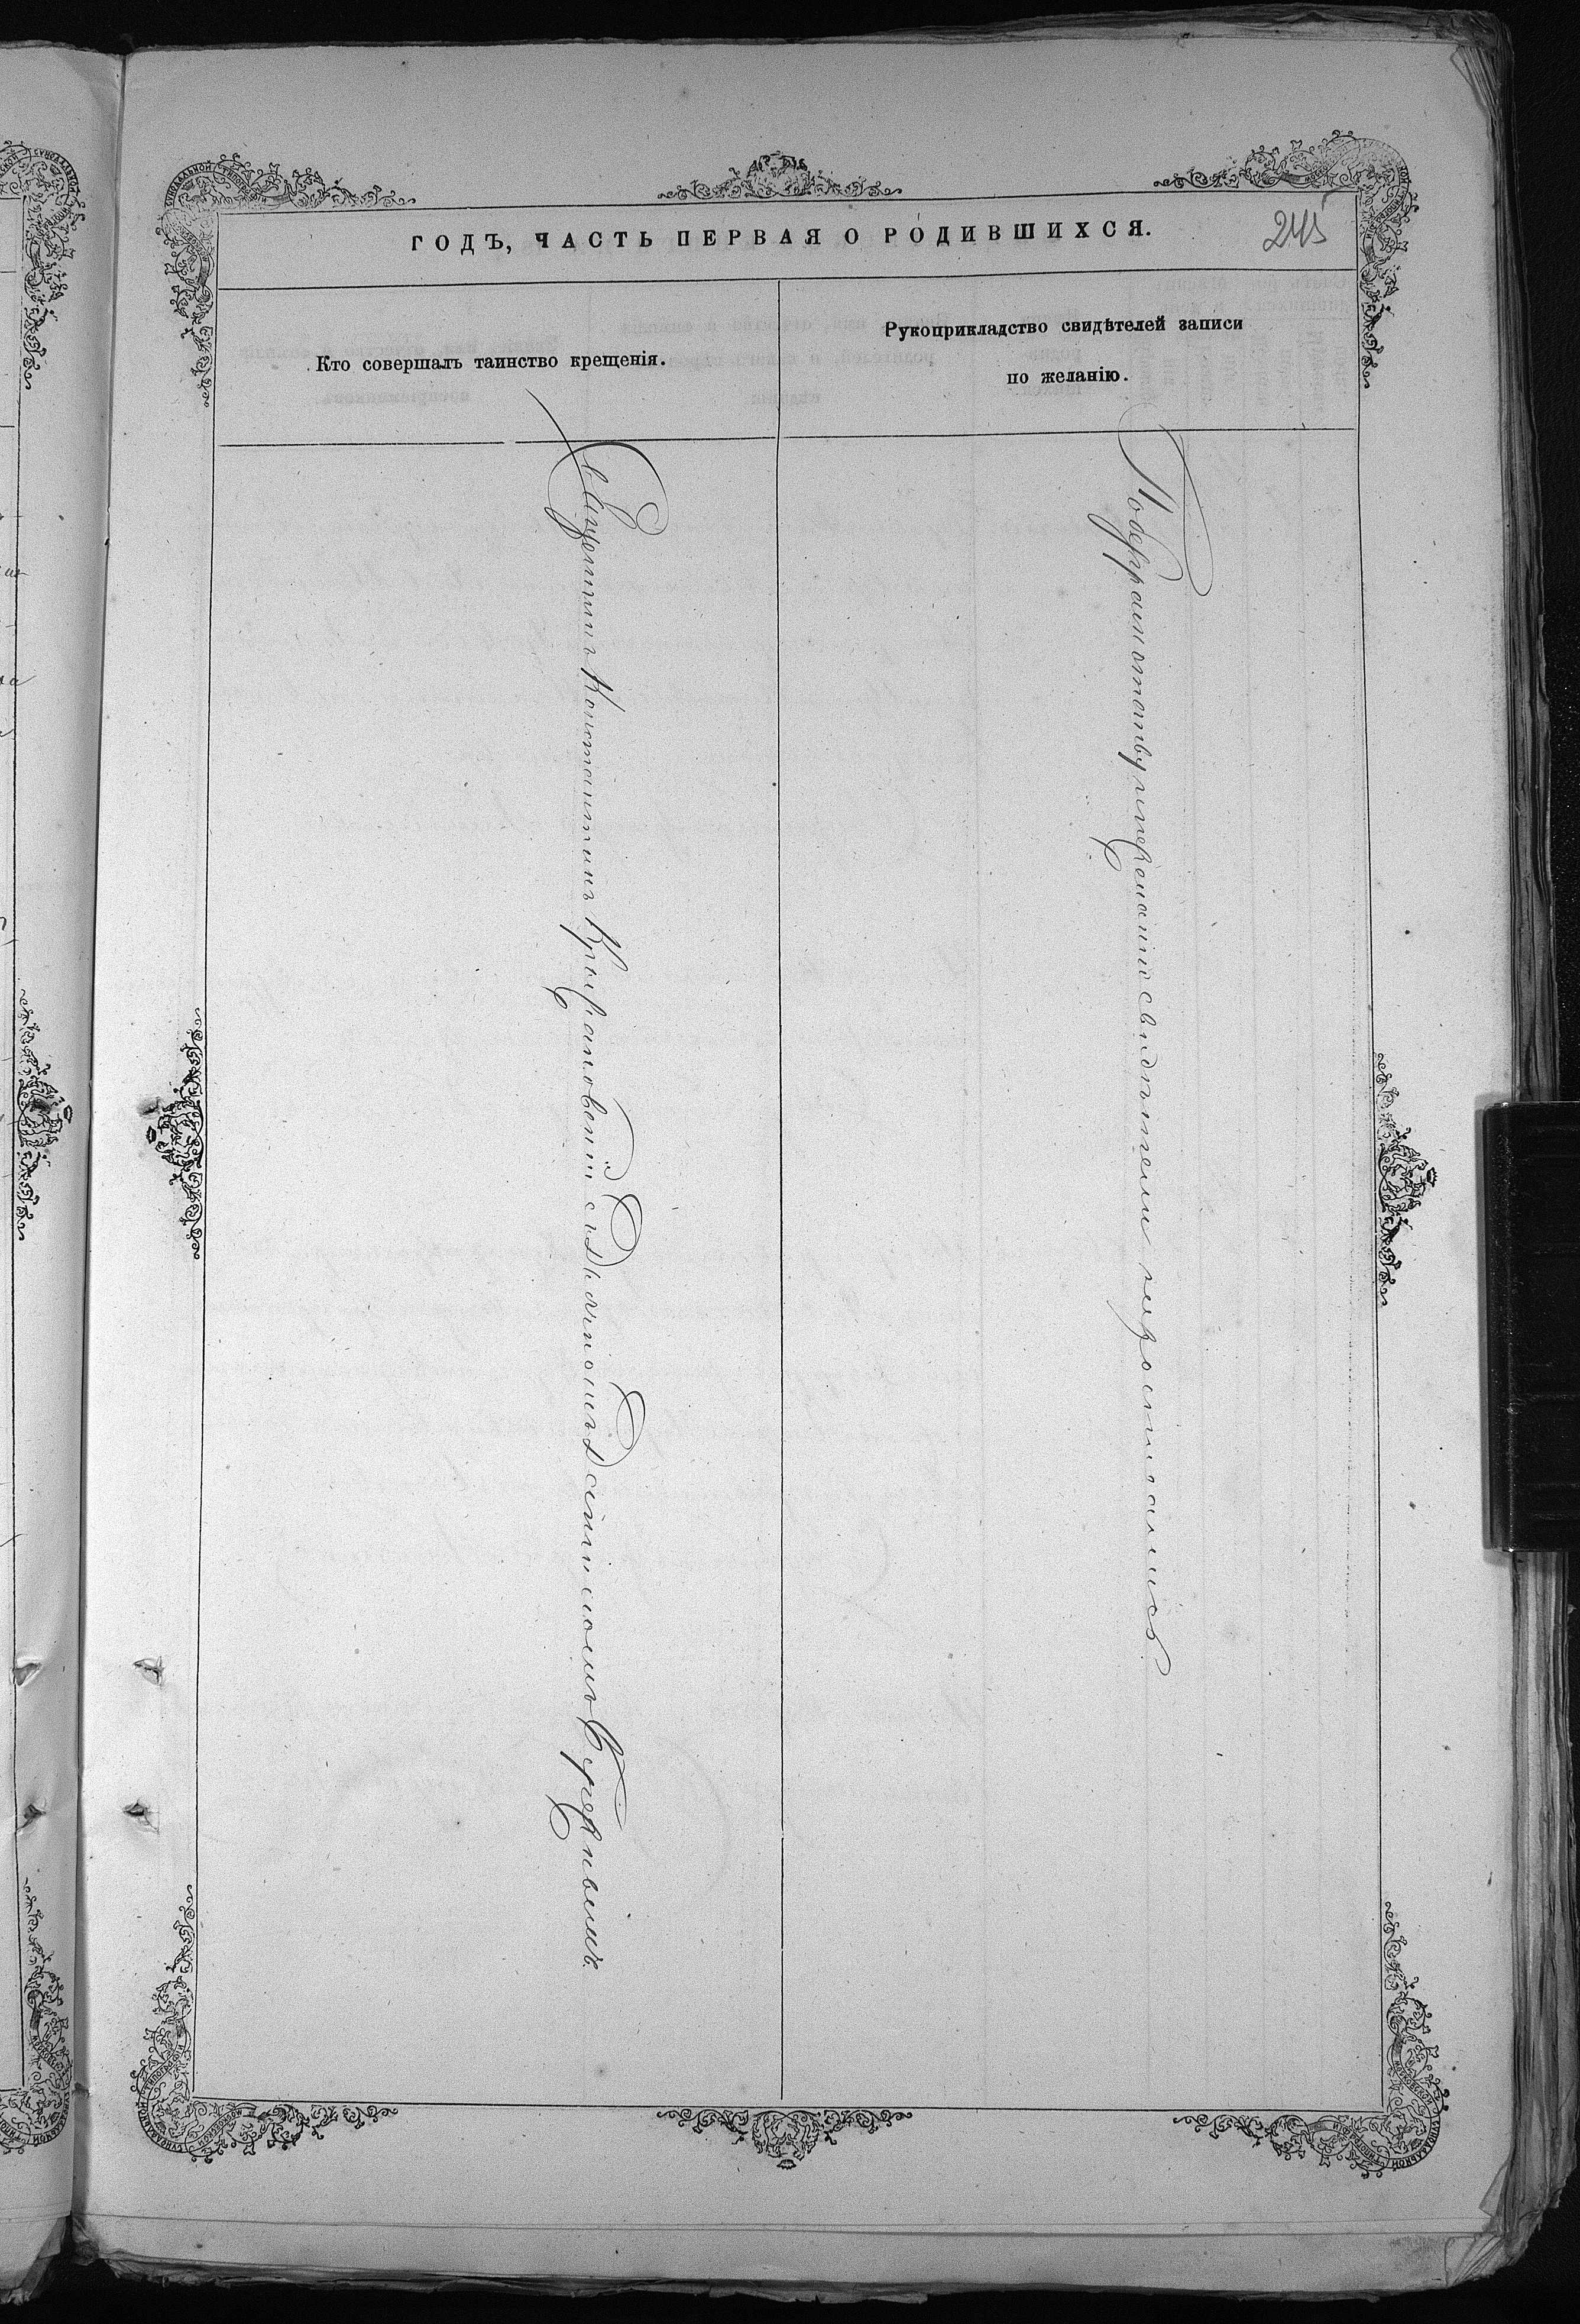 ГОДЪ, ЧАСТЬ ПЕРВАЯ О РОДИВШИХСЯ.
245
Кто совершалъ таинство крещенія.
Рукоприкладство свидѣтелей записи
по желанію.
Священникъ Константинъ съ Діакономъ Даніиломъ
свидѣтели не росписались